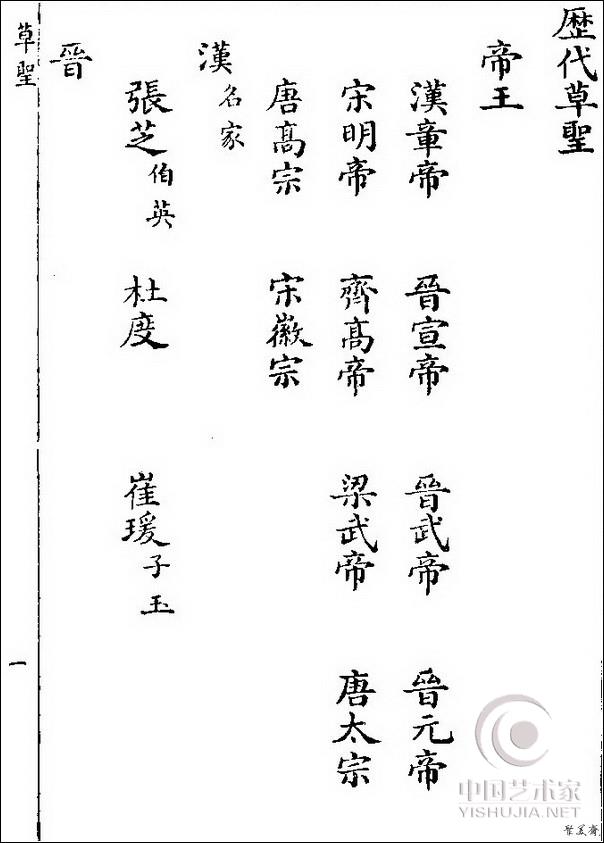 歷代草聖
帝王
漢章帝 晉宣帝 晉武帝 晉元帝
宋明帝 齊高帝 梁武帝 唐太宗
唐高宗 宋徽宗
漢名家
張芝伯英 杜度 崔瑗子玉
晉
草聖
一
中国艺术家
YISHUJIA.NET